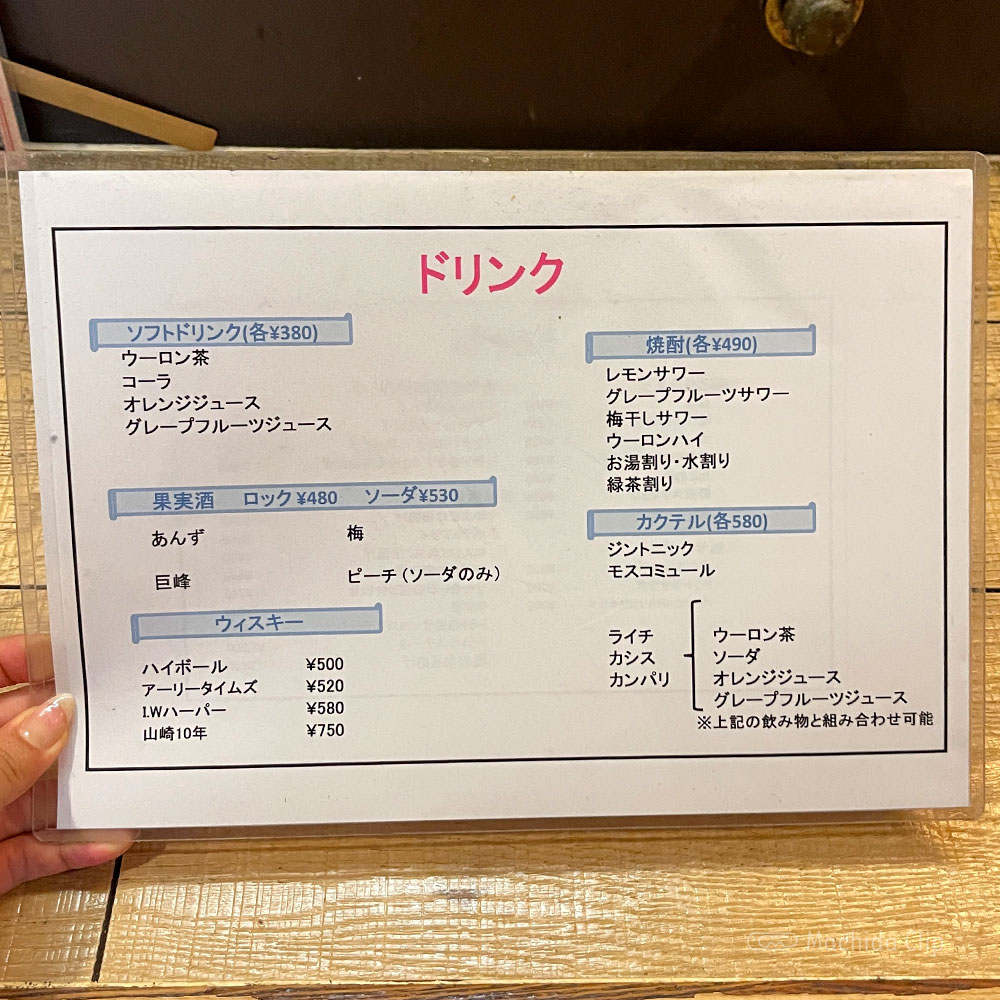 ドリンク
ソフトドリンク(各¥380)
ウーロン茶
コーラ
オレンジジュース
グレープフルーツジュース
果実酒 ロック ¥480 ソーダ¥530
あんず 梅
巨峰 ピーチ(ソーダのみ)
ウィスキー
ハイボール ¥500
アーリータイムズ ¥520
I.Wハーパー ¥580
山崎10年 ¥750
焼酎(各¥490)
レモンサワー
グレープフルーツサワー
梅干しサワー
ウーロンハイ
お湯割り・水割り
緑茶割り
カクテル(各580)
ジントニック
モスコミュール
ライチ
カシス
カンパリ
ウーロン茶
ソーダ
オレンジジュース
グレープフルーツジュース
※上記の飲み物と組み合わせ可能